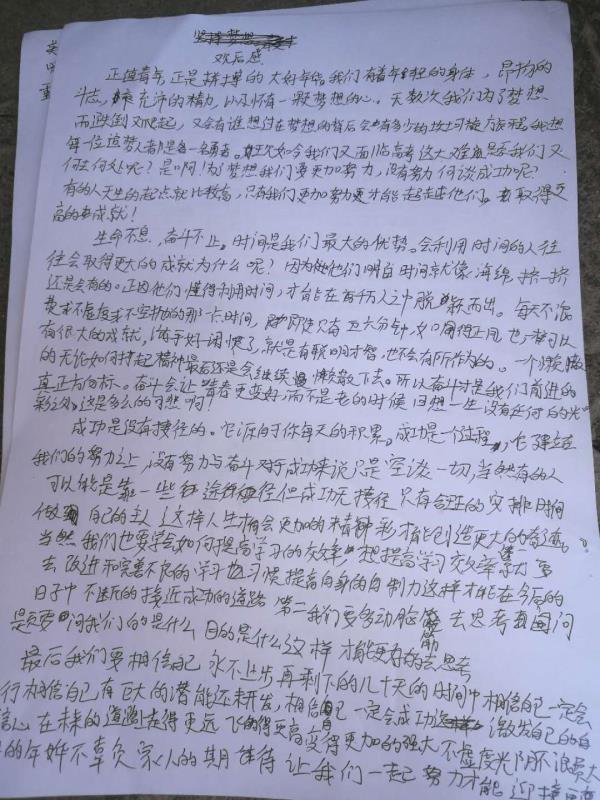 观后感
正值青年,正是拼搏的大好年华。我们有着年轻的身体,昂扬的
斗志,充沛的精力,以及怀有一颗梦想的心。无数次我们为了梦想
而跌倒又爬起,又会有谁想过在梦想的背后会有多少的坎坷挫
每一位追梦人都是每一名勇者。如今我们又面临高考这大难题我们又
何在何处呢?是啊!为了梦想我们要更加努力,没有努力何谈成功呢?
有的人天生的起点就比较高,只有我们更加努力更才能超越他们。取得更
高的成就!
生命不息,奋斗不止。时间是我们最大的优势。会利用时间的人往
往会取得更大的成就为什么呢?因为他们明白时间就像海绵,挤一挤
还是会有的。正因他们懂得利用时间,才能在百千万人之中脱颖而出。每天不浪
费光不虚度不空抛的那一点时间,即使只有五六分钟,如用得正用,也一样可以
有很大的成就,游手好闲惯了,就是有聪明才智,也不会有所作为的。一个懒散
的无论如何撑起精神最后还是会继续懒散下去。所以奋斗才是我们前进的
真正方向标。奋斗会让青春更变好,而不是老的时候回想一生没有任何的光
彩之处。这是多么的可悲啊!
成功是没有捷径的。它源自你每天的积累。成功是一个过程,它建立在
我们的努力之上,没有努力与奋斗对于成功来说只是空谈一切,当然有的人
可以能是靠一些途径但成功无捷径只有合理的安排时间
做自己的主人这样人生才有会更加的精彩才能创造更大的奇迹。
当然我们也要学会如何提高学习的效率,想提高学习效率第一要
去改进和完善不良的学习习惯提高自身的自制力这样才能在今后的
日子中不断的接近成功的道路第二我们要多动脑筋去思考问
是更要问我们的是什么目的是什么这样才能更好的去思考
最后我们要相信自己永不止步再剩下的几十天的时间中相信自己一定会
行相信自己有巨大的潜能还未开发,相信自己一定会成功激发自己的自
信心在未来的道路上走得更远飞的得更高变得更加的强大不虚度光阴不浪费大
的年华不辜负家人的期待让我们一起努力才能迎接